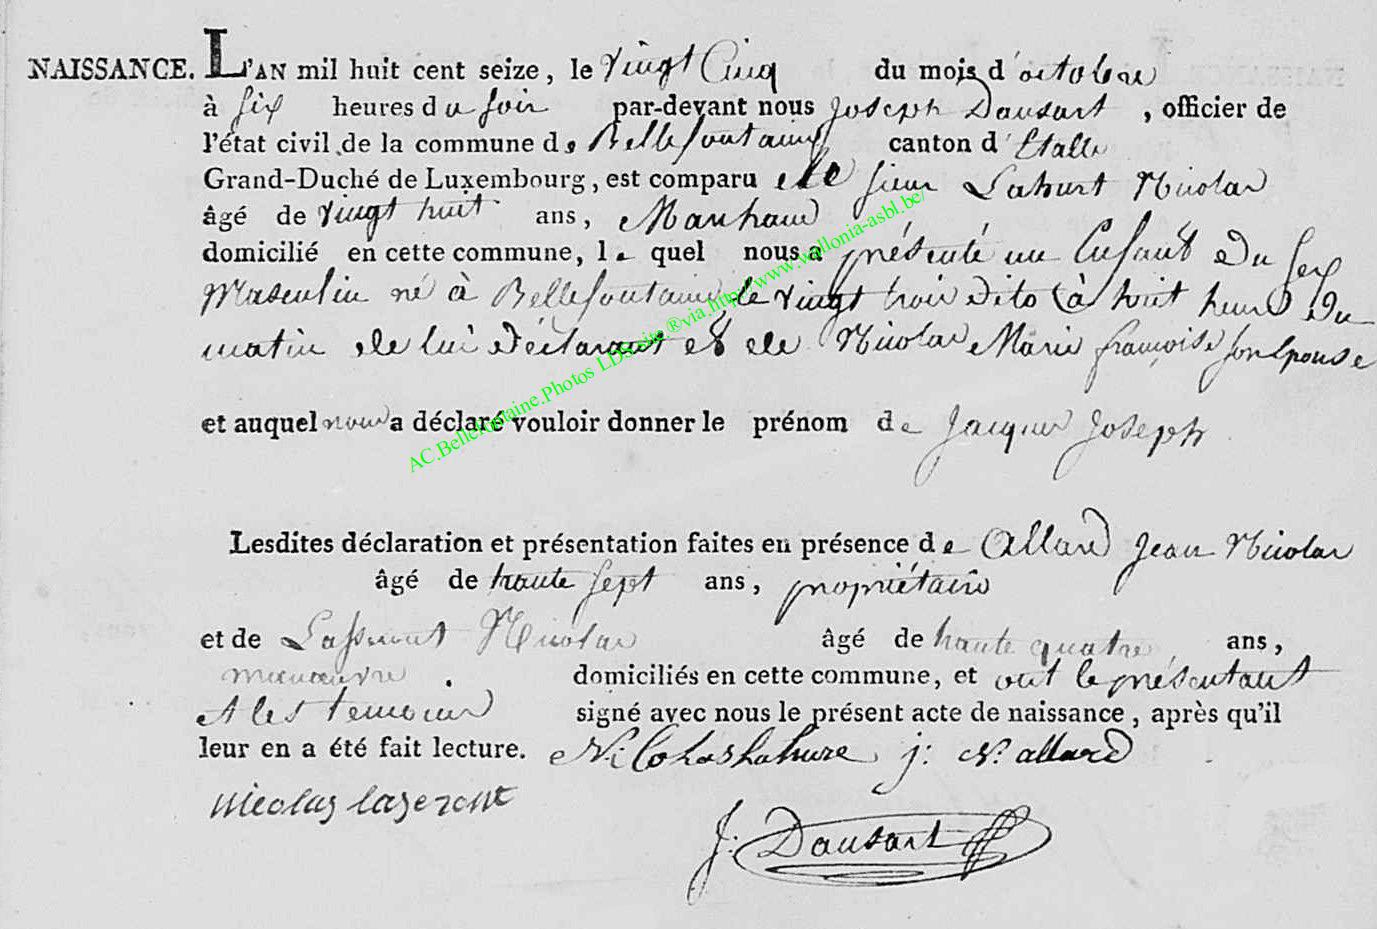 NAISSANCE. L'AN mil huit cent seize, le vingt Cinq du mois d'octobre
à six heures du soir par-devant nous joseph Dausart, officier de
l'état civil de la commune de Bellefontaine canton d'Etalle
Grand-Duché de Luxembourg, est comparu le sieur Lahurt Nicolas
âgé de vingt huit ans, Marchand
domicilié en cette commune, le quel nous a présenté un Enfant Du sex
Masculin né à Bellefontaine le vingt trois dito à huit heures Du
matin de lui Déclarant et de Nicolas Marie françoise son Epouse
et auquel nous a déclaré vouloir donner le prénom de Jacques Joseph
Lesdites déclaration et présentation faites en présence de Allard Jean Nicolas
âgé de trente sept ans, propriétaire
et de Lassront Nicolas âgé de trente quatre ans,
manœuvre. domiciliés en cette commune, et ont le présentant
et les temoins signé avec nous le présent acte de naissance, après qu'il
leur en a été fait lecture. Nicolas Lahure j: N. allard
nicolas laseront
J. Dausart
AC.Bellefontaine.Photos LDS site ® via.http://www.wallonia-asbl.be/